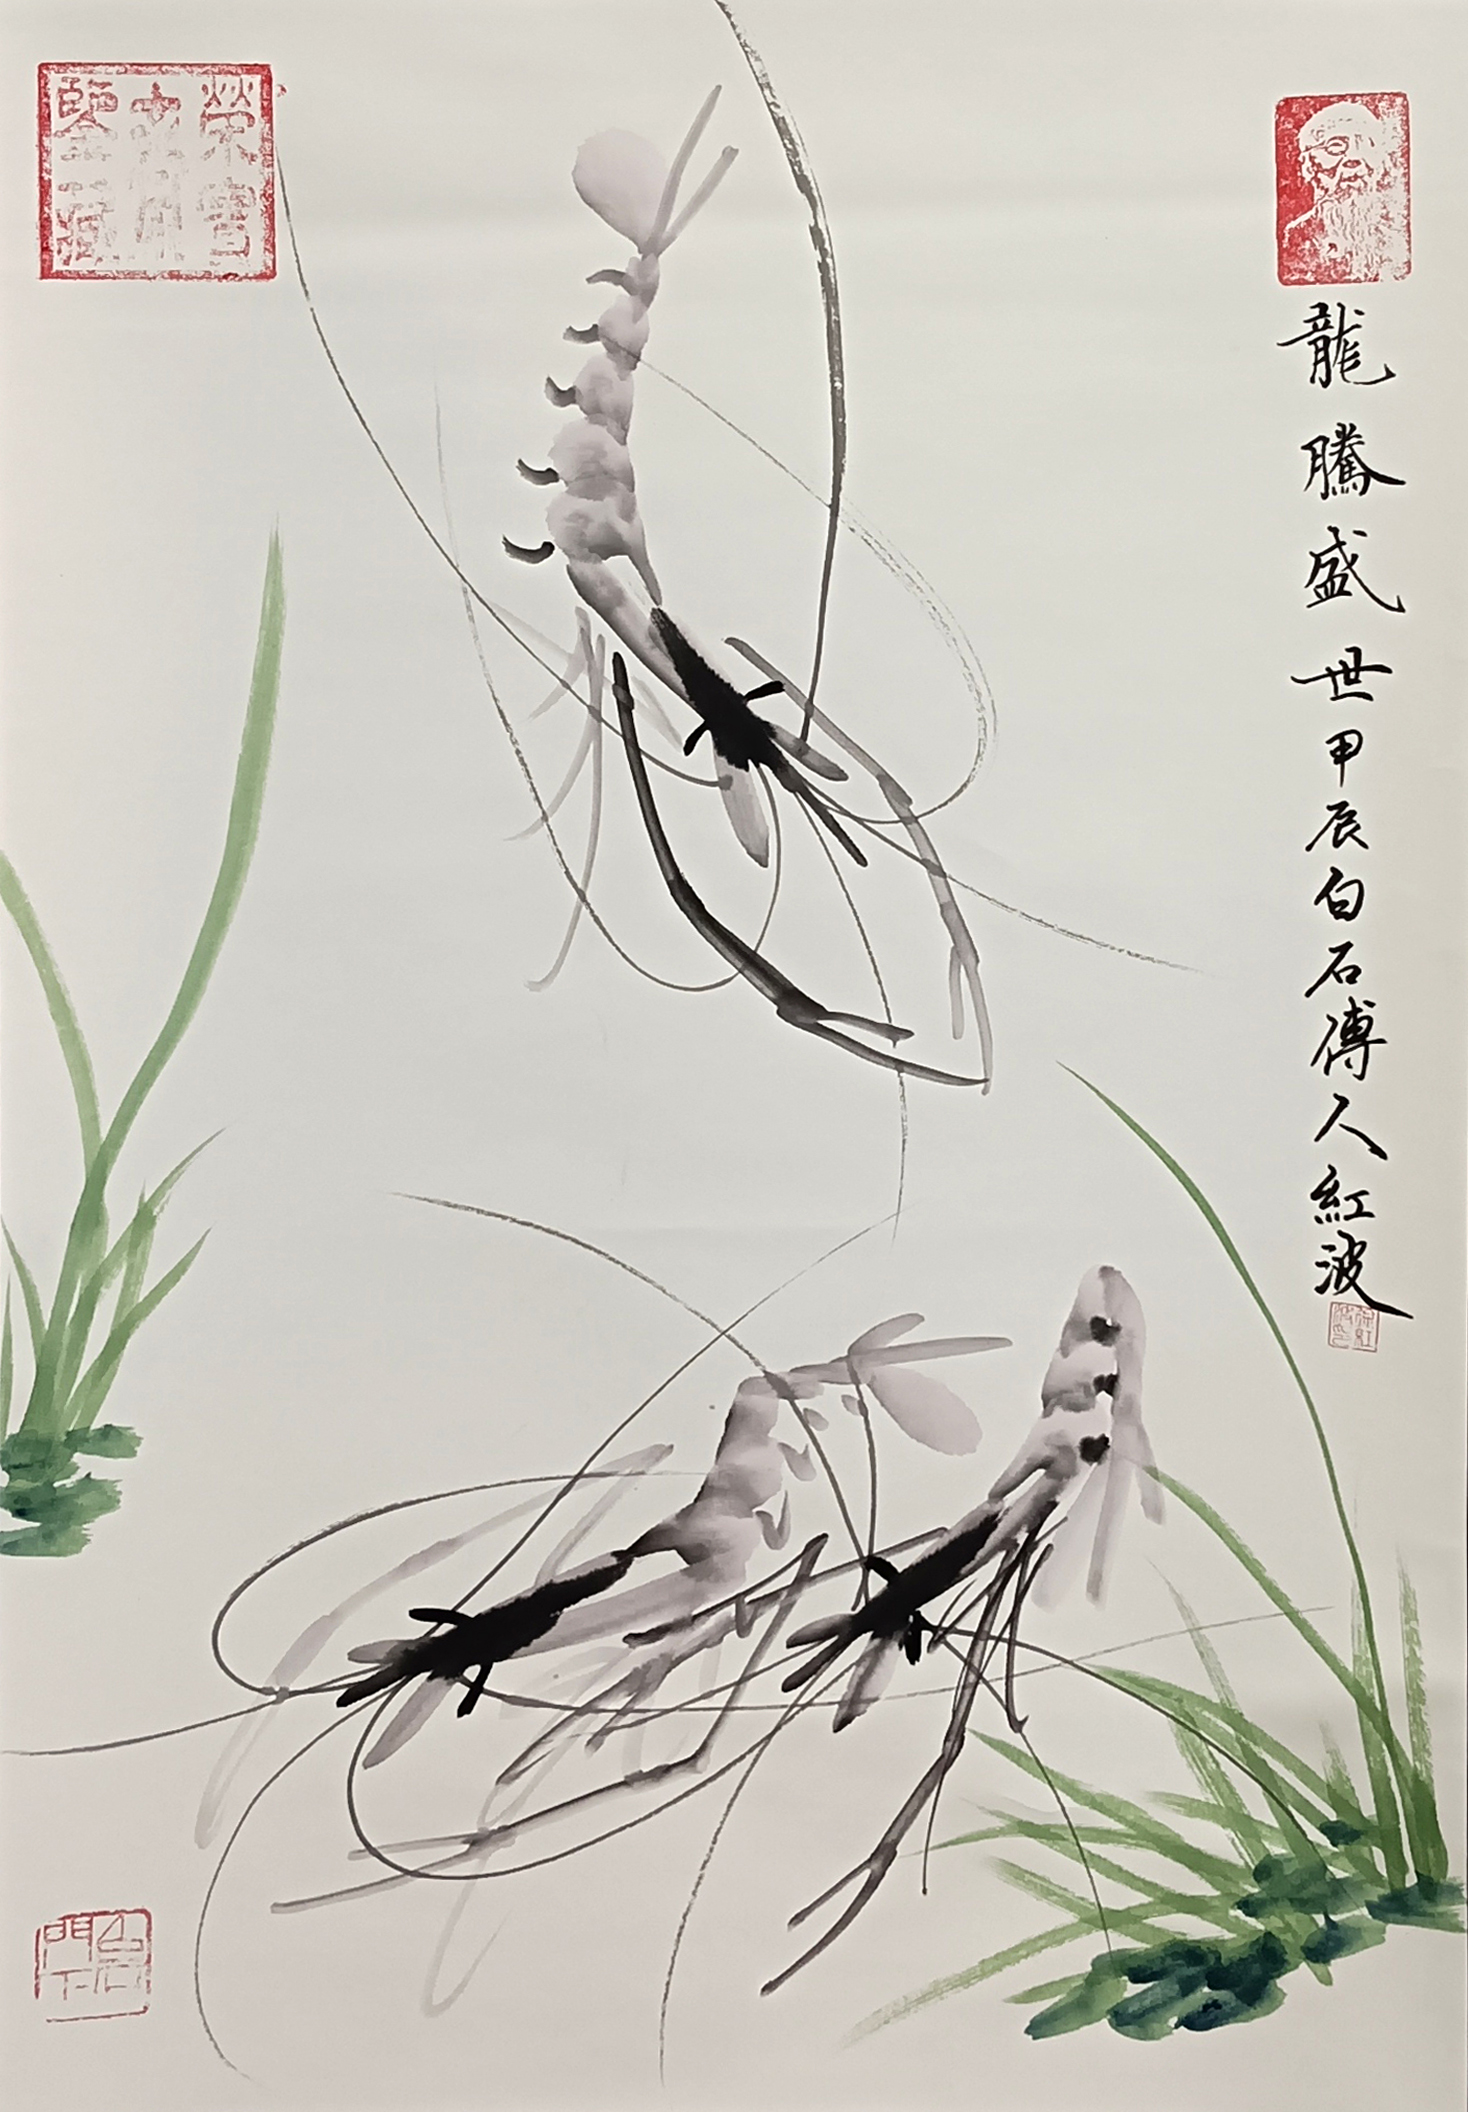 龍騰盛世甲辰白石傳人紅波
榮寶齋鑒藏